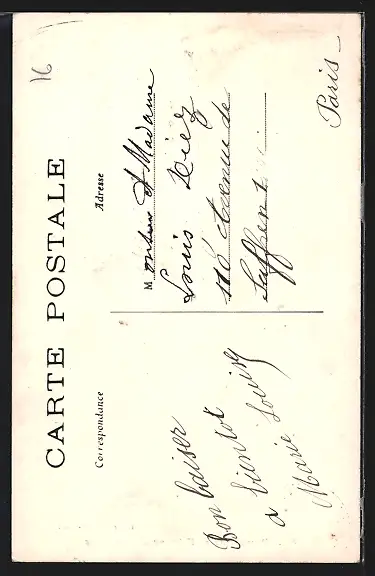 CARTE POSTALE
Correspondance
Adresse
Bon baiser
bientot
a
Marie Louise
Monsieur et Madame
Louis Diez
116 Avenue de
Suffren
Paris